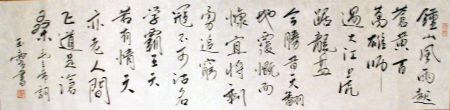 鍾山風雨起
蒼黃百
萬雄師
過大江虎
踞龍盤
今勝昔天翻
地覆慨而
慷宜將剩
勇追窮
寇不可沽名
學霸王天
若有情天
亦老人間
正道是滄
桑
書